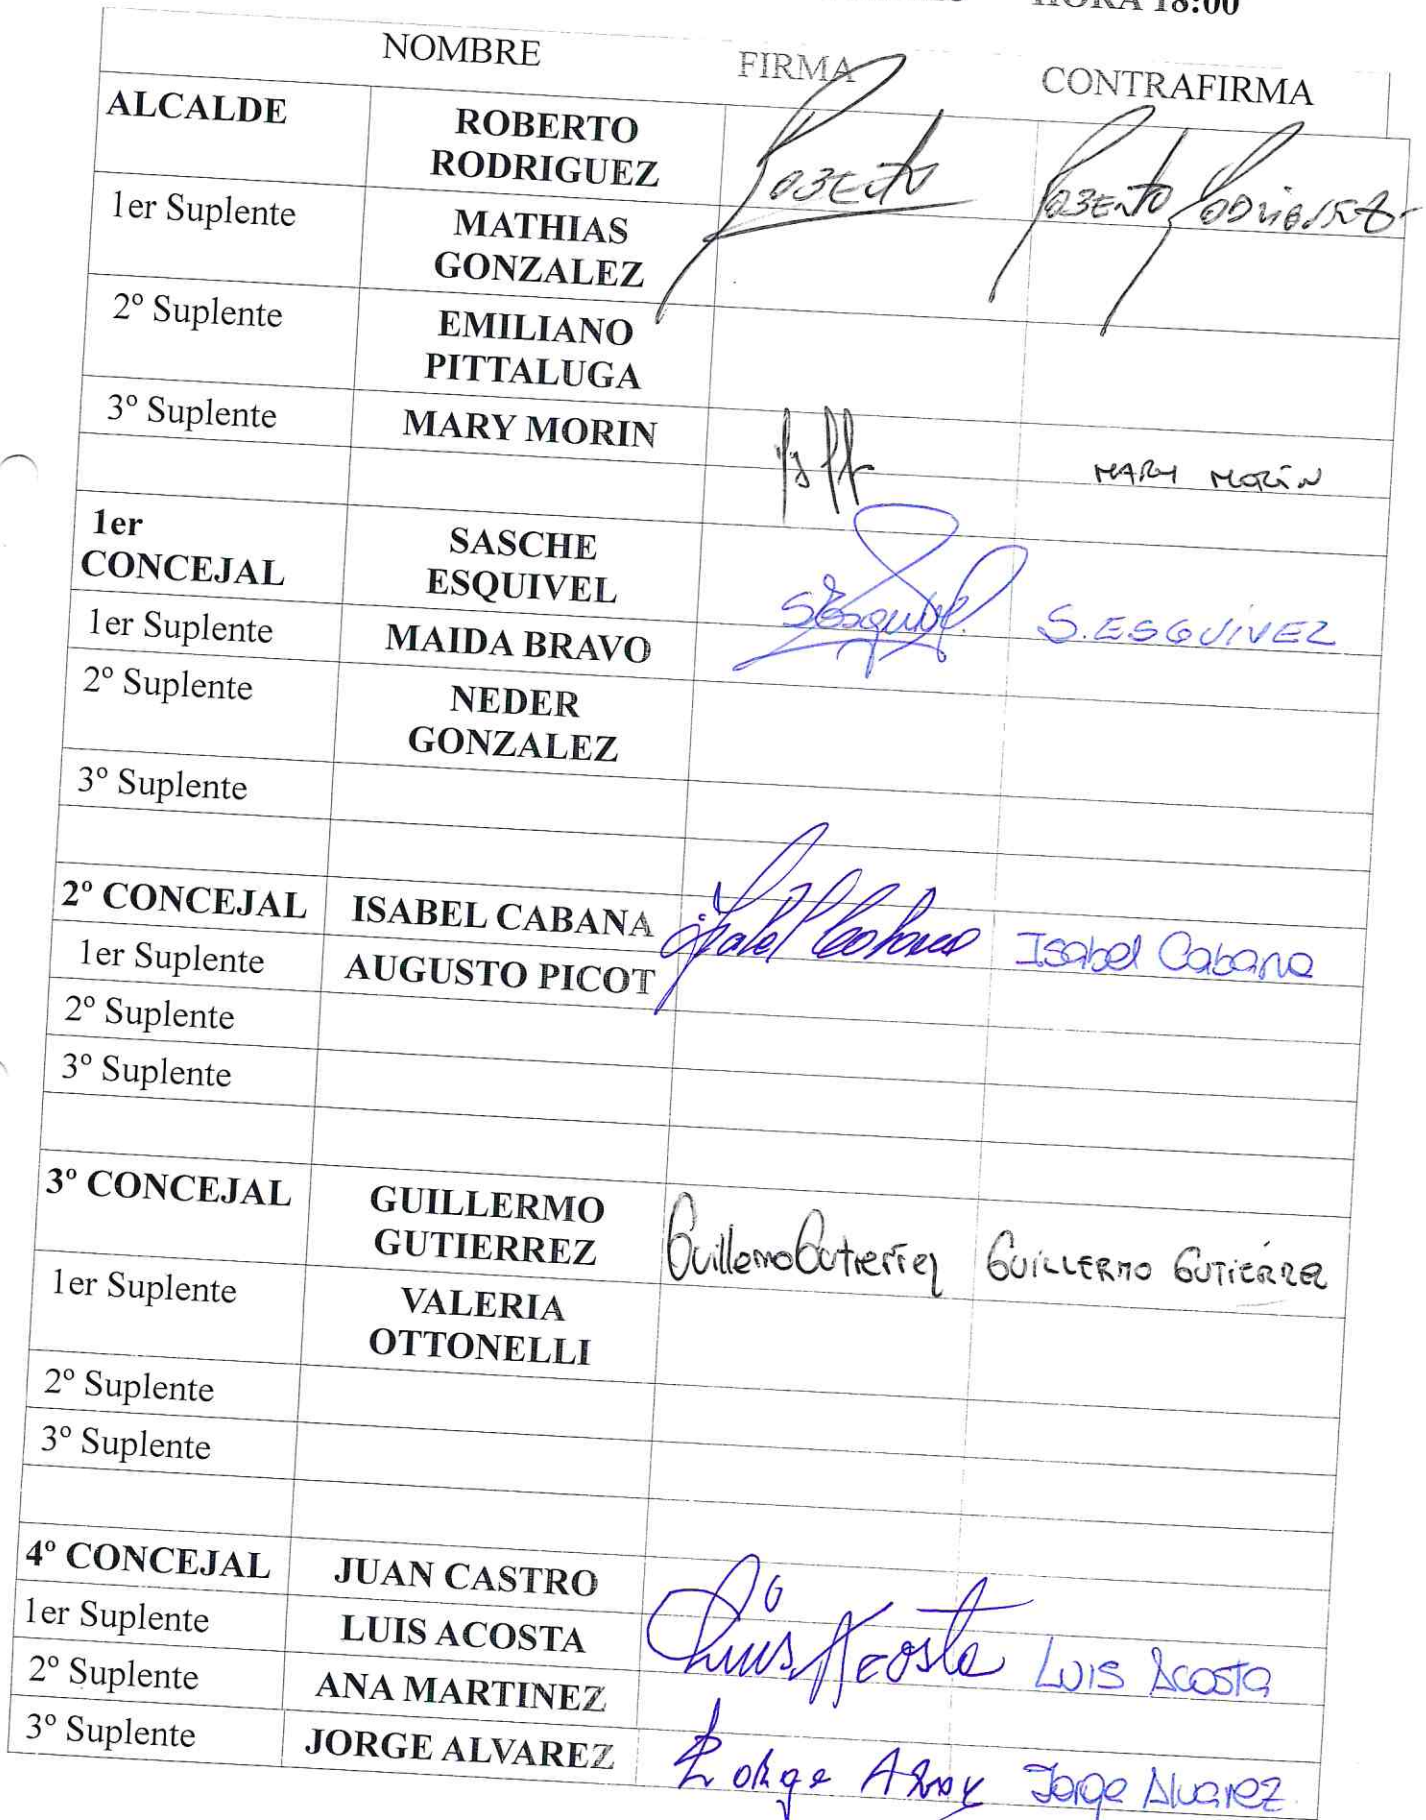 HORA 18:00
NOMBRE FIRMA CONTRAFIRMA
ALCALDE ROBERTO
RODRIGUEZ
1er Suplente MATHIAS
GONZALEZ
2º Suplente EMILIANO
PITTALUGA
3º Suplente MARY MORIN MARY MORIN
1er
CONCEJAL SASCHE
ESQUIVEL S. ESQUIVEL
1er Suplente MAIDA BRAVO
2º Suplente NEDER
GONZALEZ
3º Suplente
2º CONCEJAL ISABEL CABANA Isabel Cabana
1er Suplente AUGUSTO PICOT
2º Suplente
3º Suplente
3º CONCEJAL GUILLERMO
GUTIERREZ Guillermo Gutierrez GUILLERMO GUTIERREZ
1er Suplente VALERIA
OTTONELLI
2º Suplente
3º Suplente
4º CONCEJAL JUAN CASTRO
1er Suplente LUIS ACOSTA Luis Acosta LUIS Acosta
2º Suplente ANA MARTINEZ
3º Suplente JORGE ALVAREZ Jorge Alvarez